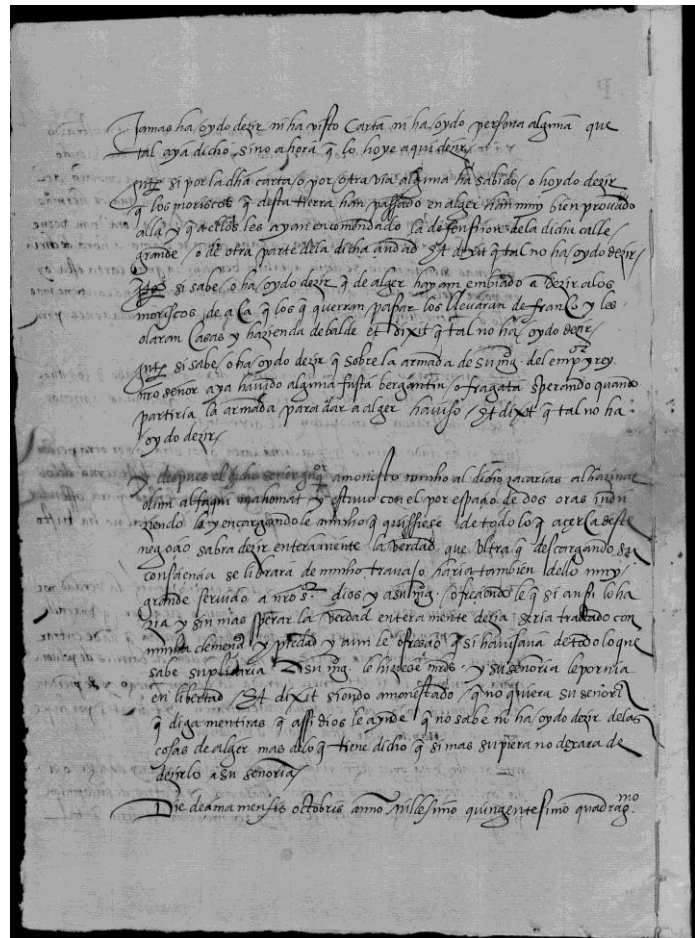 Jamas ha oydo dezir ni ha visto Carta ni ha oydo persona alguna que
tal aya dicho sino ahora q̃ lo hoye aqui dezir
Int⁹ si por la dha carta / o por / otra via alguna ha sabido / o hoydo dezir
q̃ los moriscos q̃ desta tierra han passado en alger han muy bien provado
alla y q̃ a ellos les ayan encomendado la defension dela dicha calle
grande / o de otra parte dela dicha ciudad Et dixit q̃ tal no ha / oydo dezir /
Int⁹ si sabe / o ha / oydo dezir q̃ de alger hayan embiado a dezir alos
moriscos de aca q̃ los q̃ querran passar los llevaran de franco y les
daran Casas y hazienda debalde et dixit q̃ tal no ha / oydo dezir /
Int⁹ si sabe / o ha / oydo dezir q̃ sobre la armada de su mag. del emp.ᵒʳ y rey
nr̃o señor aya havido alguna fusta bergantin / o fragata sperando quando
partiria la armada para dar a alger haviso / Et dixit q̃ tal no ha
oydo dezir /
Y despues el dicho señor amonesto mucho al dicho zacarias alhazinar
olim alfaqui mahomat y estuvo con el por espacio de dos oras indu
ziendo le y encargando le mucho q̃ quissiese de todo lo q̃ açerCa deste
negocio sabra dezir enteramente la verdad que Ultra q̃ descargando su
consciencia se librara de mucho travajo haria tambien dello muy
grande servicio a nr̃o s.ʳ dios y a su mag. ofreciendo le q̃ si ansi lo ha
zia y sin mas sperar la verdad enteramente dezia seria tratado con
mucha clemencia y piedad y aun le ofrecio q̃ si havisava de todo lo que
sabe supliaria a su mag. le hiziese mrds. y su señoria le pornia
en libertad / Et dixit siendo amonestado / q̃ no quiera su señoria
q̃ diga mentiras q̃ assi dios le ayude q̃ no sabe ni ha / oydo dezir delas
cosas de alger mas delo q̃ tiene dicho q̃ si mas supiera no dexara de
dezirlo a su señoria /
Die decima mensis octobris anno millesimo quingentesimo quadrag.ᵐᵒ